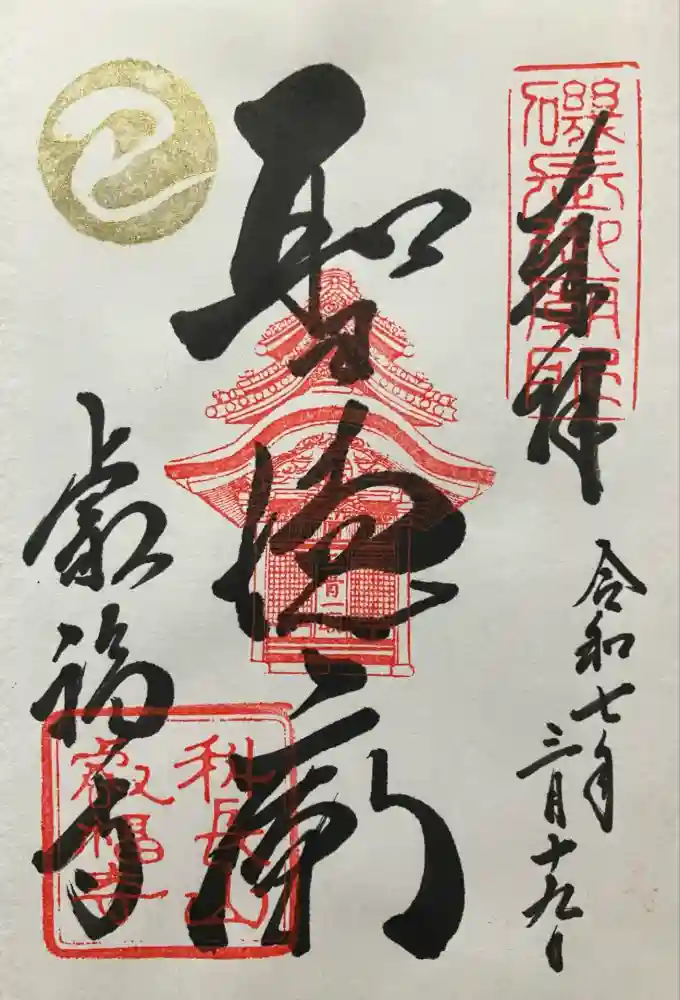 奉拝
磯長御廟所
令和七年
三月十九日
聖徳廟
叡福寺
科長山
叡福寺